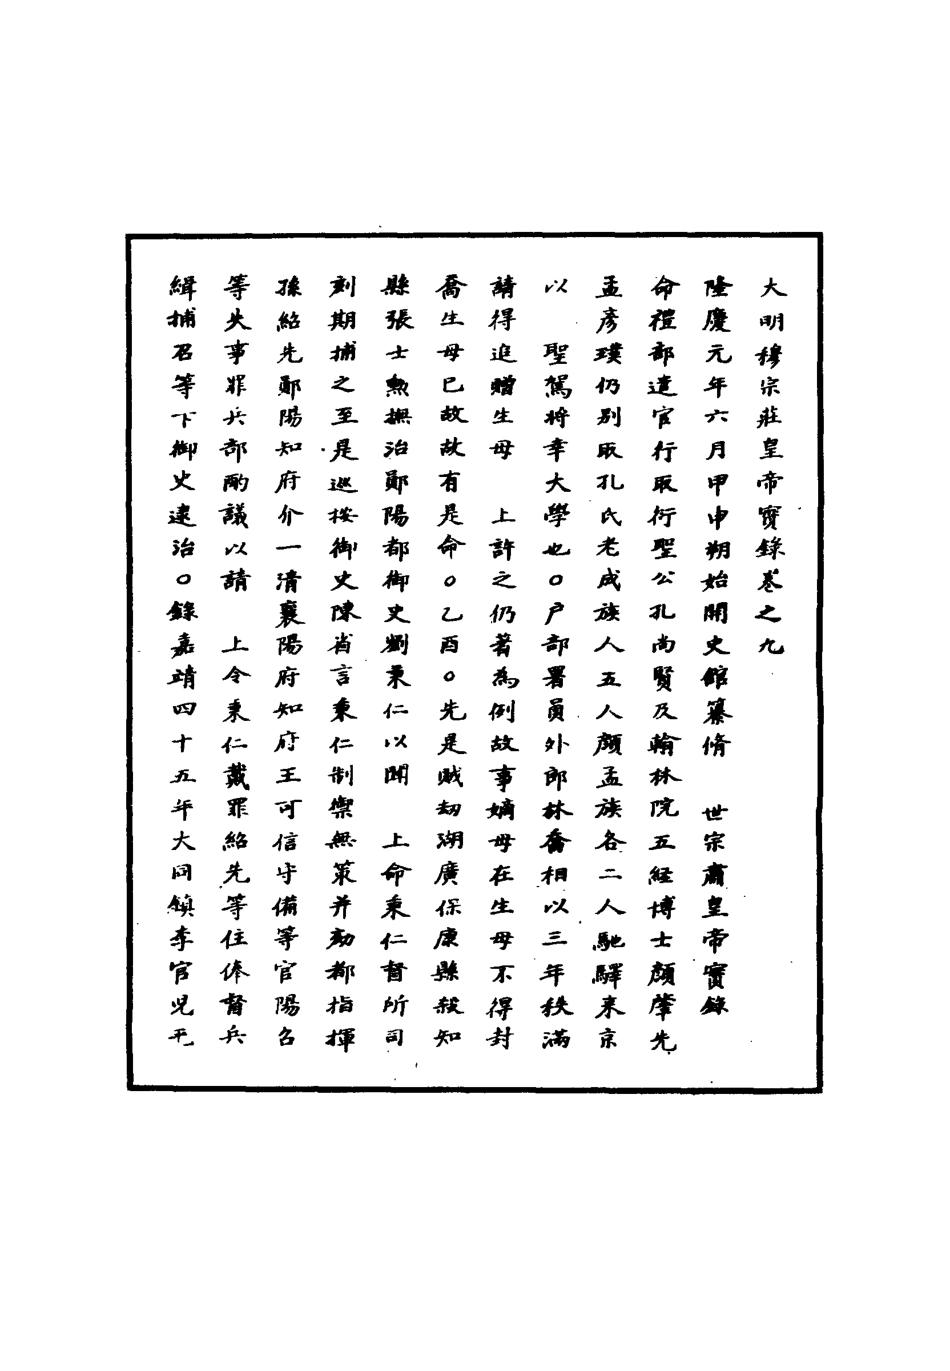 大明穆宗莊皇帝實錄卷之九
隆慶元年六月甲申朔始開史館纂脩　世宗肅皇帝實錄
命禮部遣官行取衍聖公孔尚賢及翰林院五經博士顏肇先
孟彥璞仍別取孔氏老成族人五人顏孟族各二人馳驛來京
以　聖駕將幸大學也○戶部署員外郎林喬相以三年秩滿
請得追贈生母　上許之仍著為例故事嫡母在生母不得封
喬生母已故故有是命○乙酉○先是賊刼湖廣保康縣殺知
縣張士勲撫治鄖陽都御史劉秉仁以聞　上命秉仁督所司
刻期捕之至是巡按御史陳省言秉仁制禦無策并劾都指揮
孫紹先鄖陽知府介一清襄陽府知府王可信守備等官陽名
等失事罪兵部酌議以請　上令秉仁戴罪紹先等住俸督兵
緝捕召等下御史逮治○錄嘉靖四十五年大同鎮李官児平